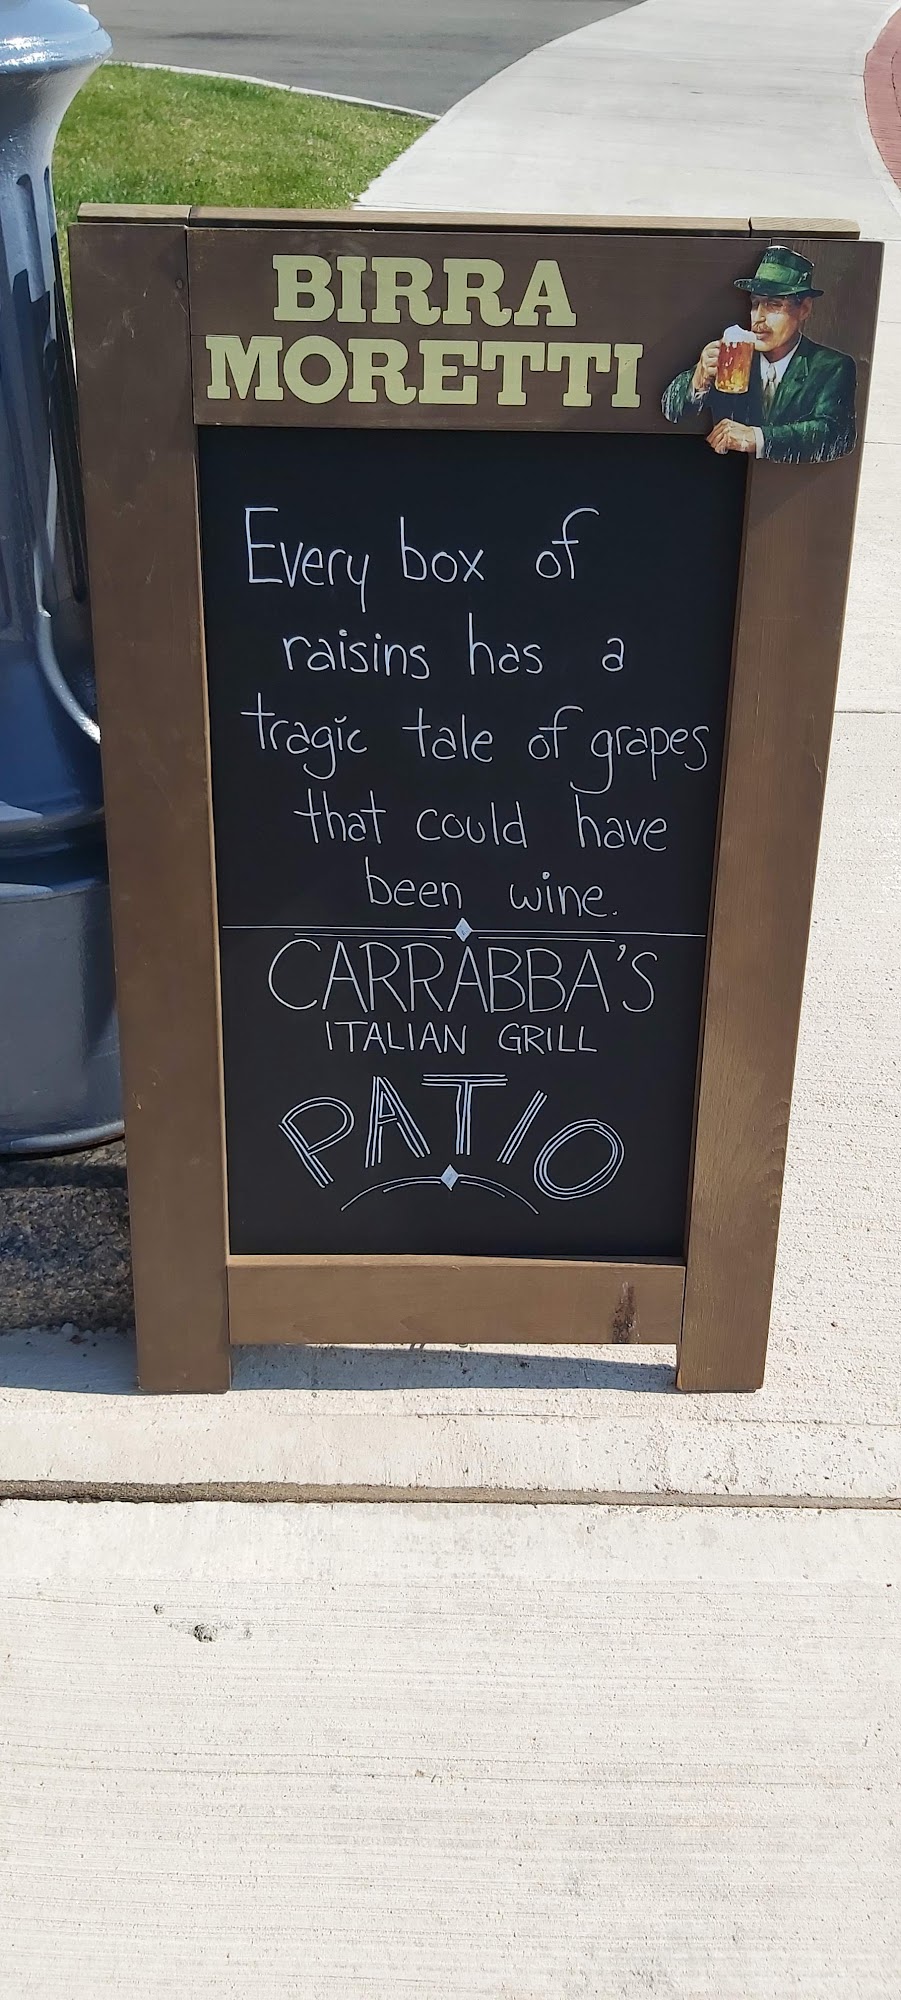 BIRRA
MORETTI
Every box of
raisins has a
tragic tale of grapes
that could have
been wine.
CARRABBA'S
ITALIAN GRILL
PATIO